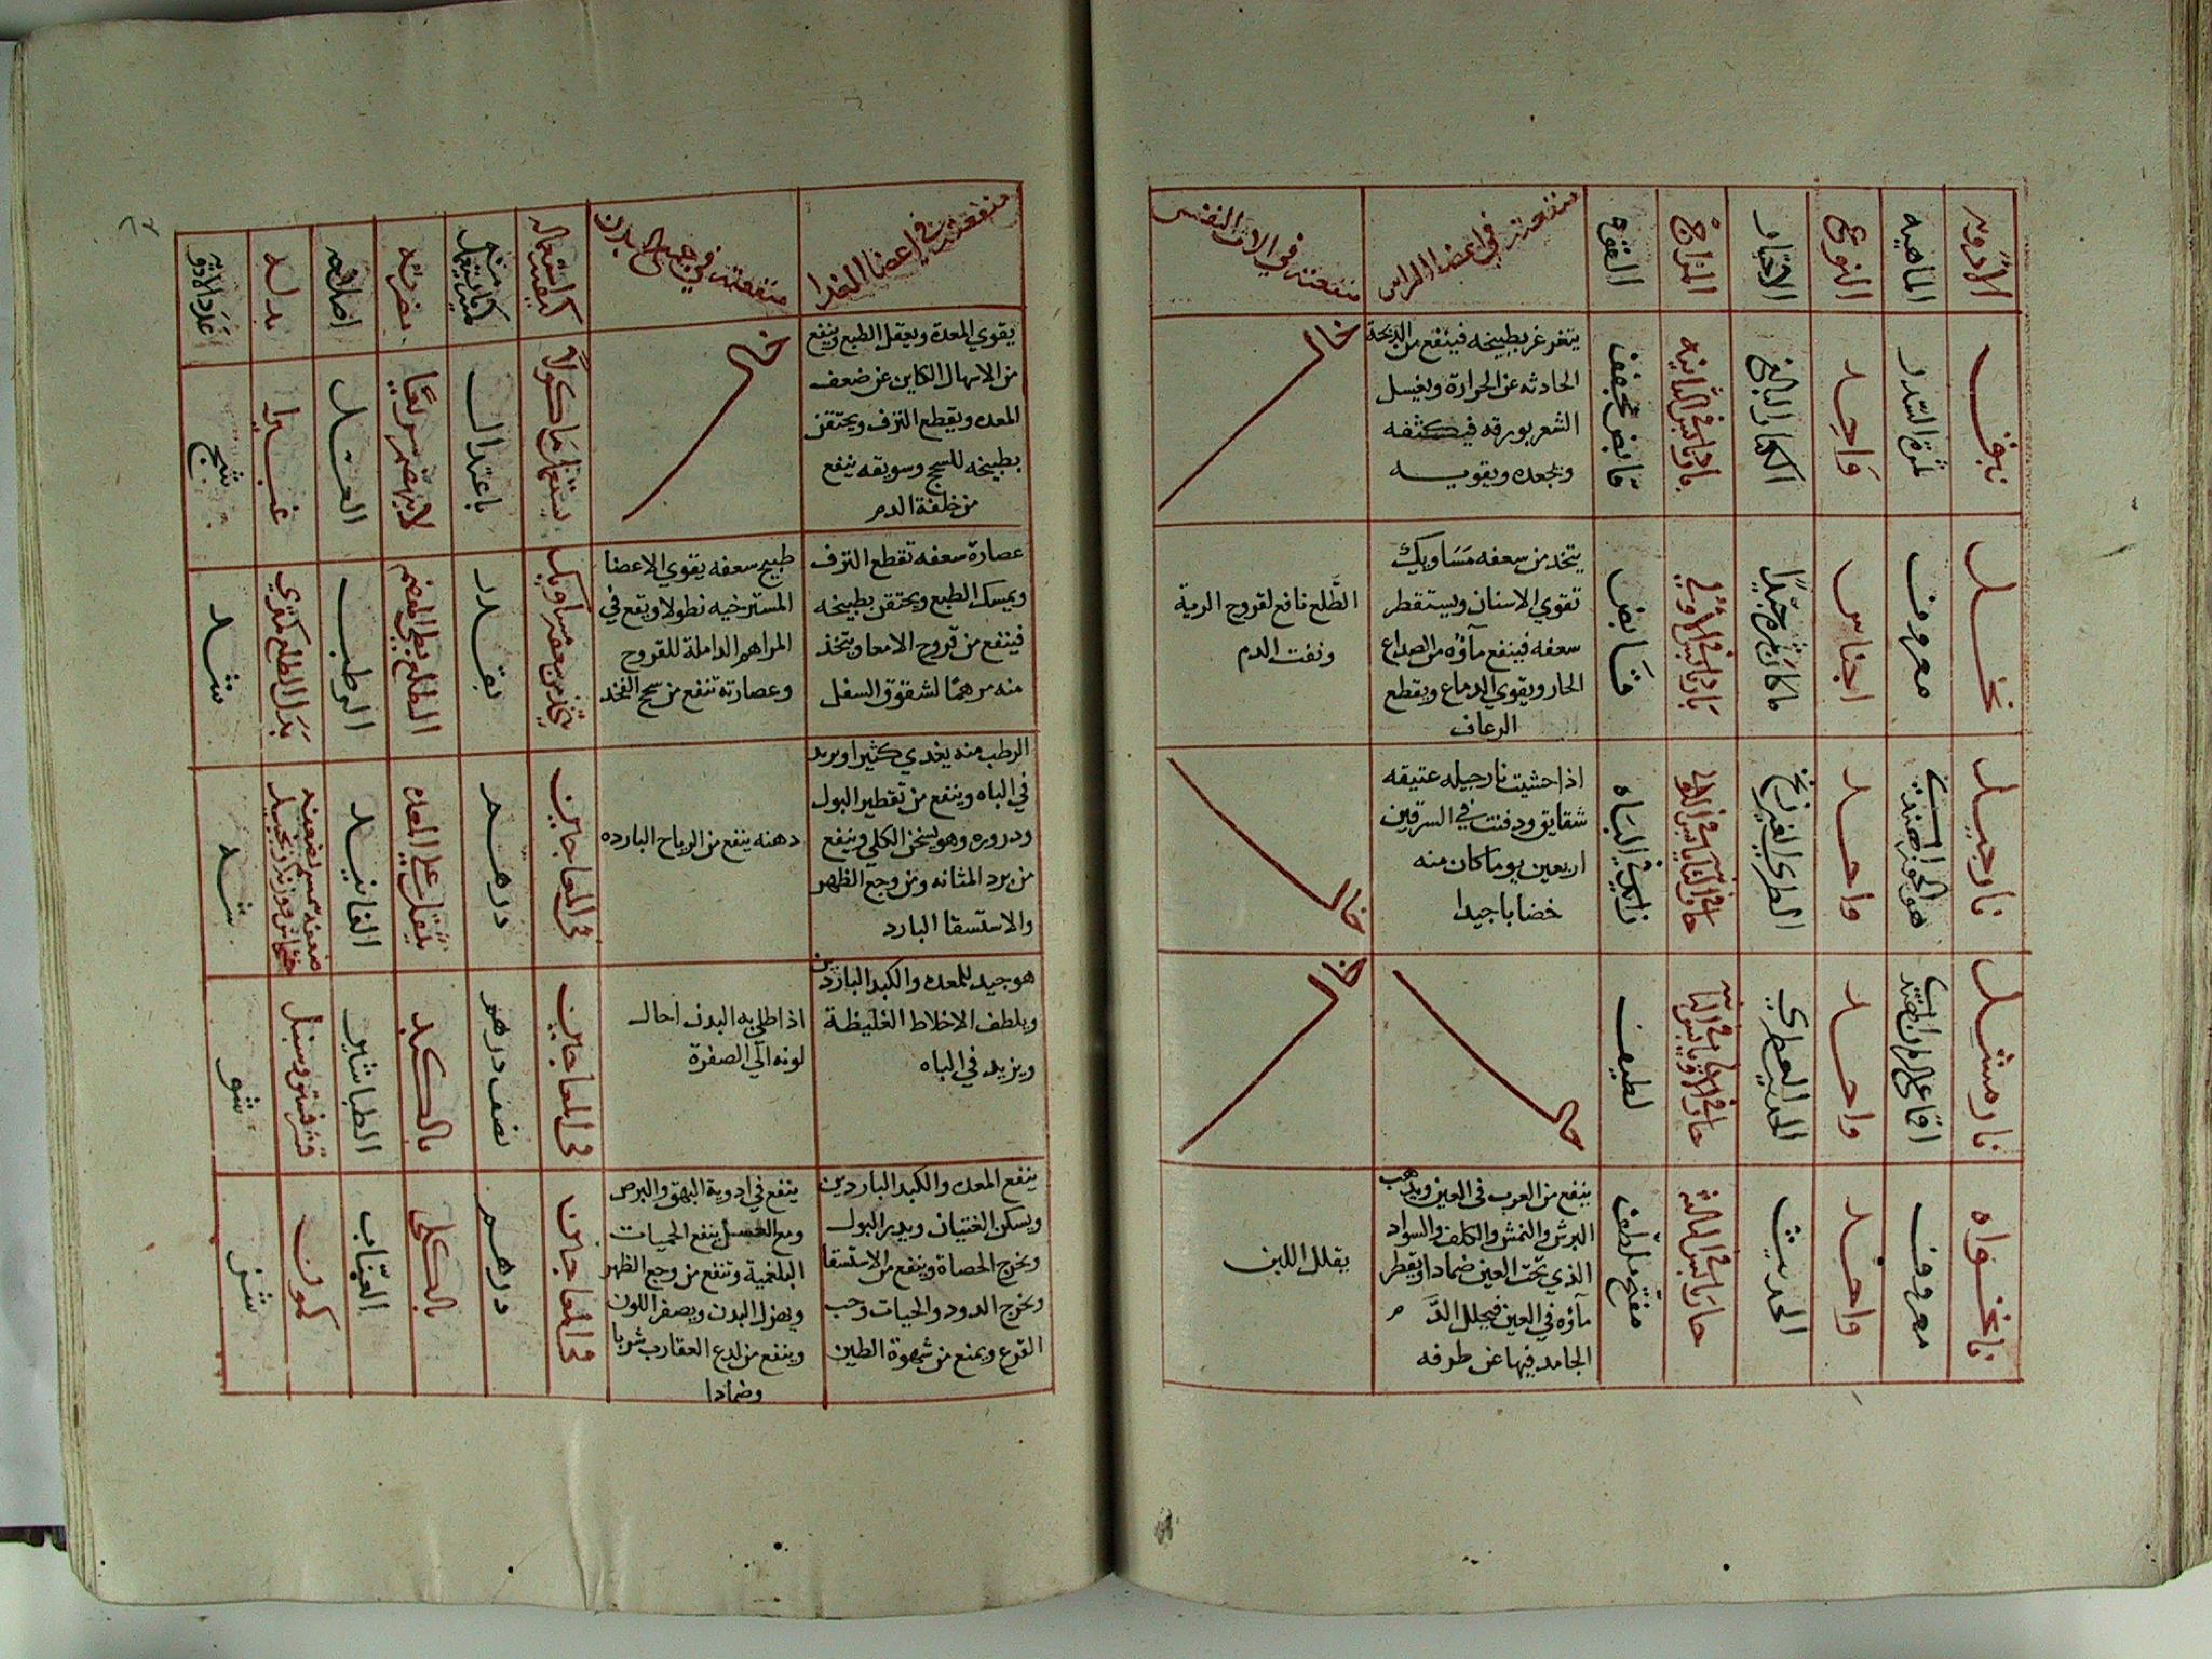 الادويه
الماهيه
النوع
الاختيار
المزاج
القوه
منفعته في اعضا الراس
منفعته في الات النفس
نبق
ثمرة السدر
واحد
الكبار البالغ
بارد يابس في الثانيه
قابض مجفف
يتغرغر بطبيخه فينفع من الذبحة
الحادثه عن الحرارة ويغسل
الشعر بورقه فيكثفه
ويجعده ويقويه
خال
نخل
معروف
اجناس
ما كان ثمره جيدًا
بارد يابس في الاولي
قابض
يتخد من سعفه مَسَاويك
تقوي الاسنان ويستقطر
سعفه فينفع مآؤه من الصداع
الحار ويقوي الدماغ ويقطع
الرعاف
الطَّلع نافع لقروح الرية
ونفث الدم
نارجيل
هو الجوز الهندي
واحد
الطري الغير زنخ
زايد في البَاه
اذا حشيت نارجيله عتيقه
شقايق ودفنت في السرقين
اربعين يوما كان منه
خضابا جيدا
خال
نارمشك
واحد
الحديث العطري
لطيف
خال
خال
نانخواه
معروف
واحد
الحديث
حار يابس في الثالثة
مفتح ملطف
ينفع من العرب في العين ويذهب
البرش والنمش والكلف والسواد
الذي تحت العين ضمادا ويقطر
مآؤه في العين فيحلل الدَّم
الجامد فيها عن طرفه
يقلل اللبن
منفعته في اعضا الغدا
منفعته في جميع البدن
كيفية استعماله
كمية ما يستعمل منه
مضرته
اصلاحه
بدله
عدد الادويه
يقوي المعدة ويعقل الطبع وينفع
من الاسهال الكاين عن ضعف
المعده ويقطع النزف ويحتقن
بطبيخه للسحج وسويقه ينفع
من خلفة الدم
خال
يستعمل ماكولاً
باعتدال
لا ينهضم سريعًا
العسل
غبيرا
شج
عصارة سعفه تقطع النزف
ويمسك الطبع ويحتقن بطبيخه
فينفع من قروح الامعا ويتخذ
منه مرهمًا لشقوق السفل
طبيخ سعفه يقوي الاعضا
المسترخيه نطولا ويقع في
المراهم الداملة للقروح
وعصارته تنفع من سحج الفخد
يتخذ من سعفه مساويك
بقدر
الطلع بطي الهضم
الرطب
بدل الطلع كمثري
شد
الرطب منه يغدي كثيرا ويزيد
في الباه وينفع من تقطير البول
ودروره وهو يسخن الكلي وينفع
من برد المثانه ومن وجع الظهر
والاستسقا البارد
دهنه ينفع من الرياح البارده
في المعاجين
درهم
يثقل علي المعده
الفانيد
شه
هو جيد للمعده والكبد الباردين
ويلطف الاخلاط الغليظة
ويزيد في الباه
اذا طلي به البدن احال
لونه الي الصفرة
في المعاجين
نصف درهم
بالكبد
الطباشير
قشر فستق وسنبل
شو
ينفع المعده والكبد الباردين
ويسكن الغثيان ويدر البول
ويخرج الحصاة وينفع من الاستسقا
ويخرج الدود والحيات وحب
القرع ويمنع من شهوة الطين
ينفع في ادوية البهق والبرص
ومع العسل ينفع الحميات
البلغمية وتنفع من وجع الظهر
ويهزل البدن ويصفر اللون
وينفع من لدغ العقارب شربا
وضمادا
في المعاجين
درهم
بالكلي
العنّاب
كمون
شز